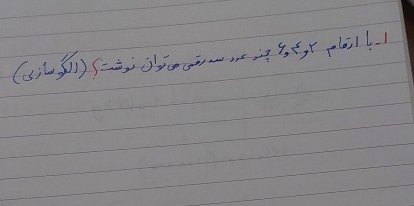 ۱- با ارقام ۲ و ۴ و ۶ چند عدد سه رقمی می توان نوشت؟ (الگوسازی)